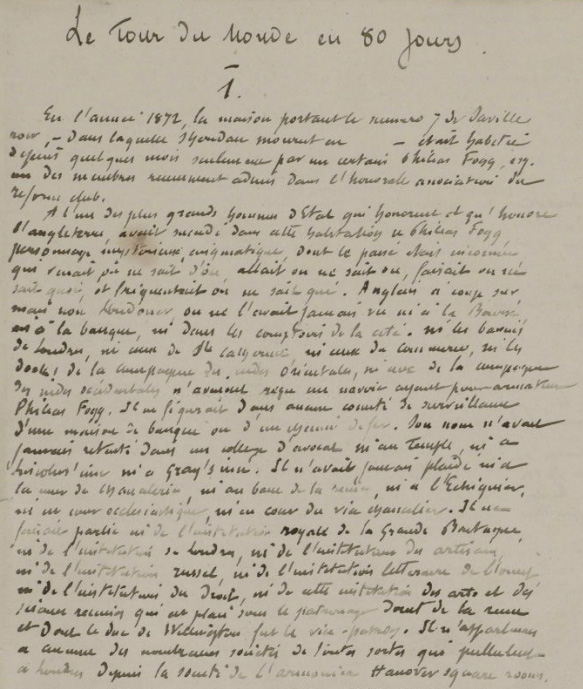 Le Tour du Monde en 80 jours.
I.
En l'année 1872, la maison portant le numero 7 de Saville
row, – dans laquelle Sheridan mourut en – était habitée
depuis quelques mois seulement par un certain Phileas Fogg, esq.
un des membres recemment admis dans l'honorable association du
reforme club.
A l'un des plus grands hommes d'Etat qui honorent
l'angleterre, avait succédé dans cette habitation ce Phileas Fogg
personnage mysterieux, enigmatique, dont le passé etait inconnu
qui venait on ne sait d'où, allait on ne sait ou, faisait on ne
sait quoi, et frequentait on ne sait qui. Anglais a coup sur
mais non londoner, on ne l'avait jamais vu ni à la Bourse,
ni à la banque, ni dans les comptoirs de la cité. ni les bassins
de Londres, ni ceux de Ste Catherine, ni ceux du commerce, ni les
docks de la compagnie des indes Orientales, ni ceux de la compagnie
des indes occidentales n'avaient reçu un navire ayant pour armateur
Phileas Fogg. Il ne figurait dans aucun comité de surveillance
d'une maison de banque ou d'un de fer. Son nom n'avait
jamais retenti dans un college d'avocat ni au Temple, ni a
Lincolns' inn ni a Gray's inn. Il n'avait jamais plaidé ni a
la cour de chancelerie, ni au banc de la reine, ni a l'Echiquier,
ni en cour ecclesiastique, ni en cour du vice chancelier. Il ne
faisait partie ni de l'institution royale de la Grande Bretagne,
ni de l'institution de Londres, ni de l'institution des artisans,
ni de l'institution russel, ni de l'institution litteraire de l'ouest,
ni de l'institution du Droit, ni de cette institution des arts et des
sciences reunies qui est placé sous le patronage dont de la reine
et dont le duc de Wellington fut le vice-patron. Il n'appartenait
a aucune des nombreuses sociétés de toutes sortes qui pullulent
a Londres depuis la société de l'armonica Hanover square rooms,